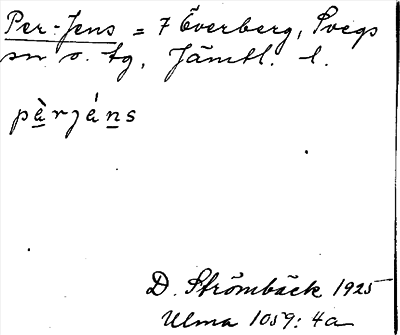 Per-Jens = 7 Överberg, Svegs
sn o. tg, Jämtl. l.
pèrjéns
D. Strömbäck 1925
Ulma 1059: 4a